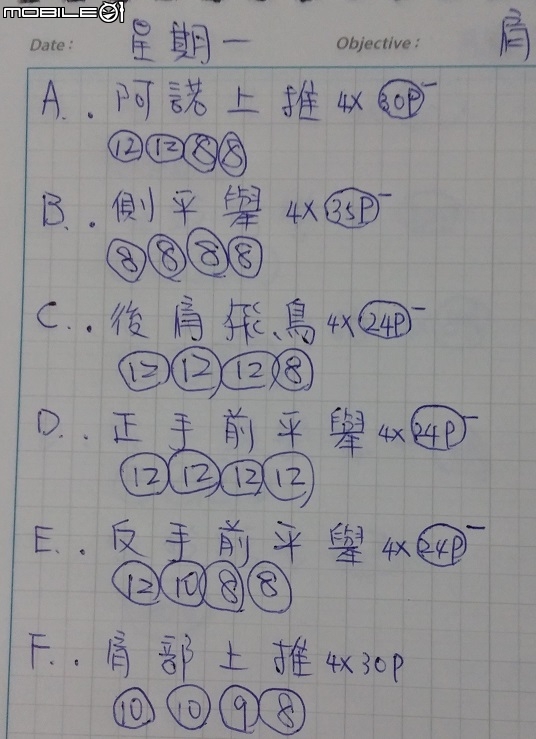 MOBILE01
Date: 星期一 Objective: 肩
A.. 阿諾上推 4x 30P-
12 12 8 8
B.. 側平舉 4x 35P-
8 8 8 8
C.. 後肩飛鳥 4x 24P-
12 12 12 8
D.. 正手前平舉 4x 24P-
12 12 12 12
E.. 反手前平舉 4x 24P-
12 10 8 8
F.. 肩部上推 4x30P
10 10 9 8